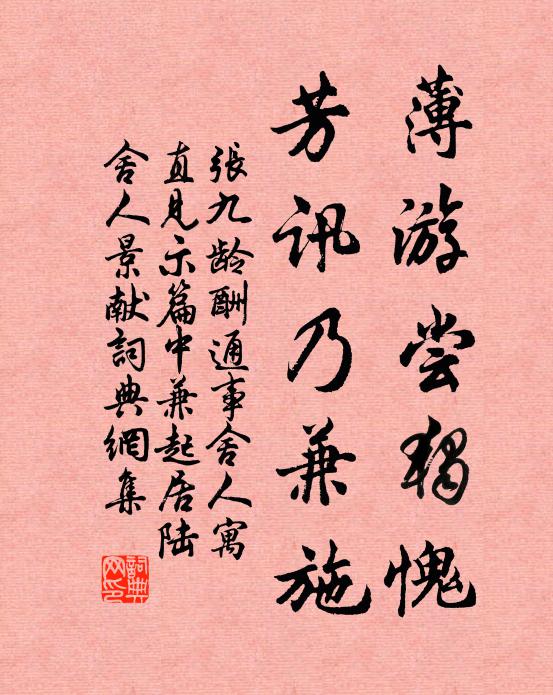 薄游尝独愧
芳讯乃兼施
張九龄酬通事舍人寓
直見示篇中兼起居陆
舍人景献詞典網集
詞典网印